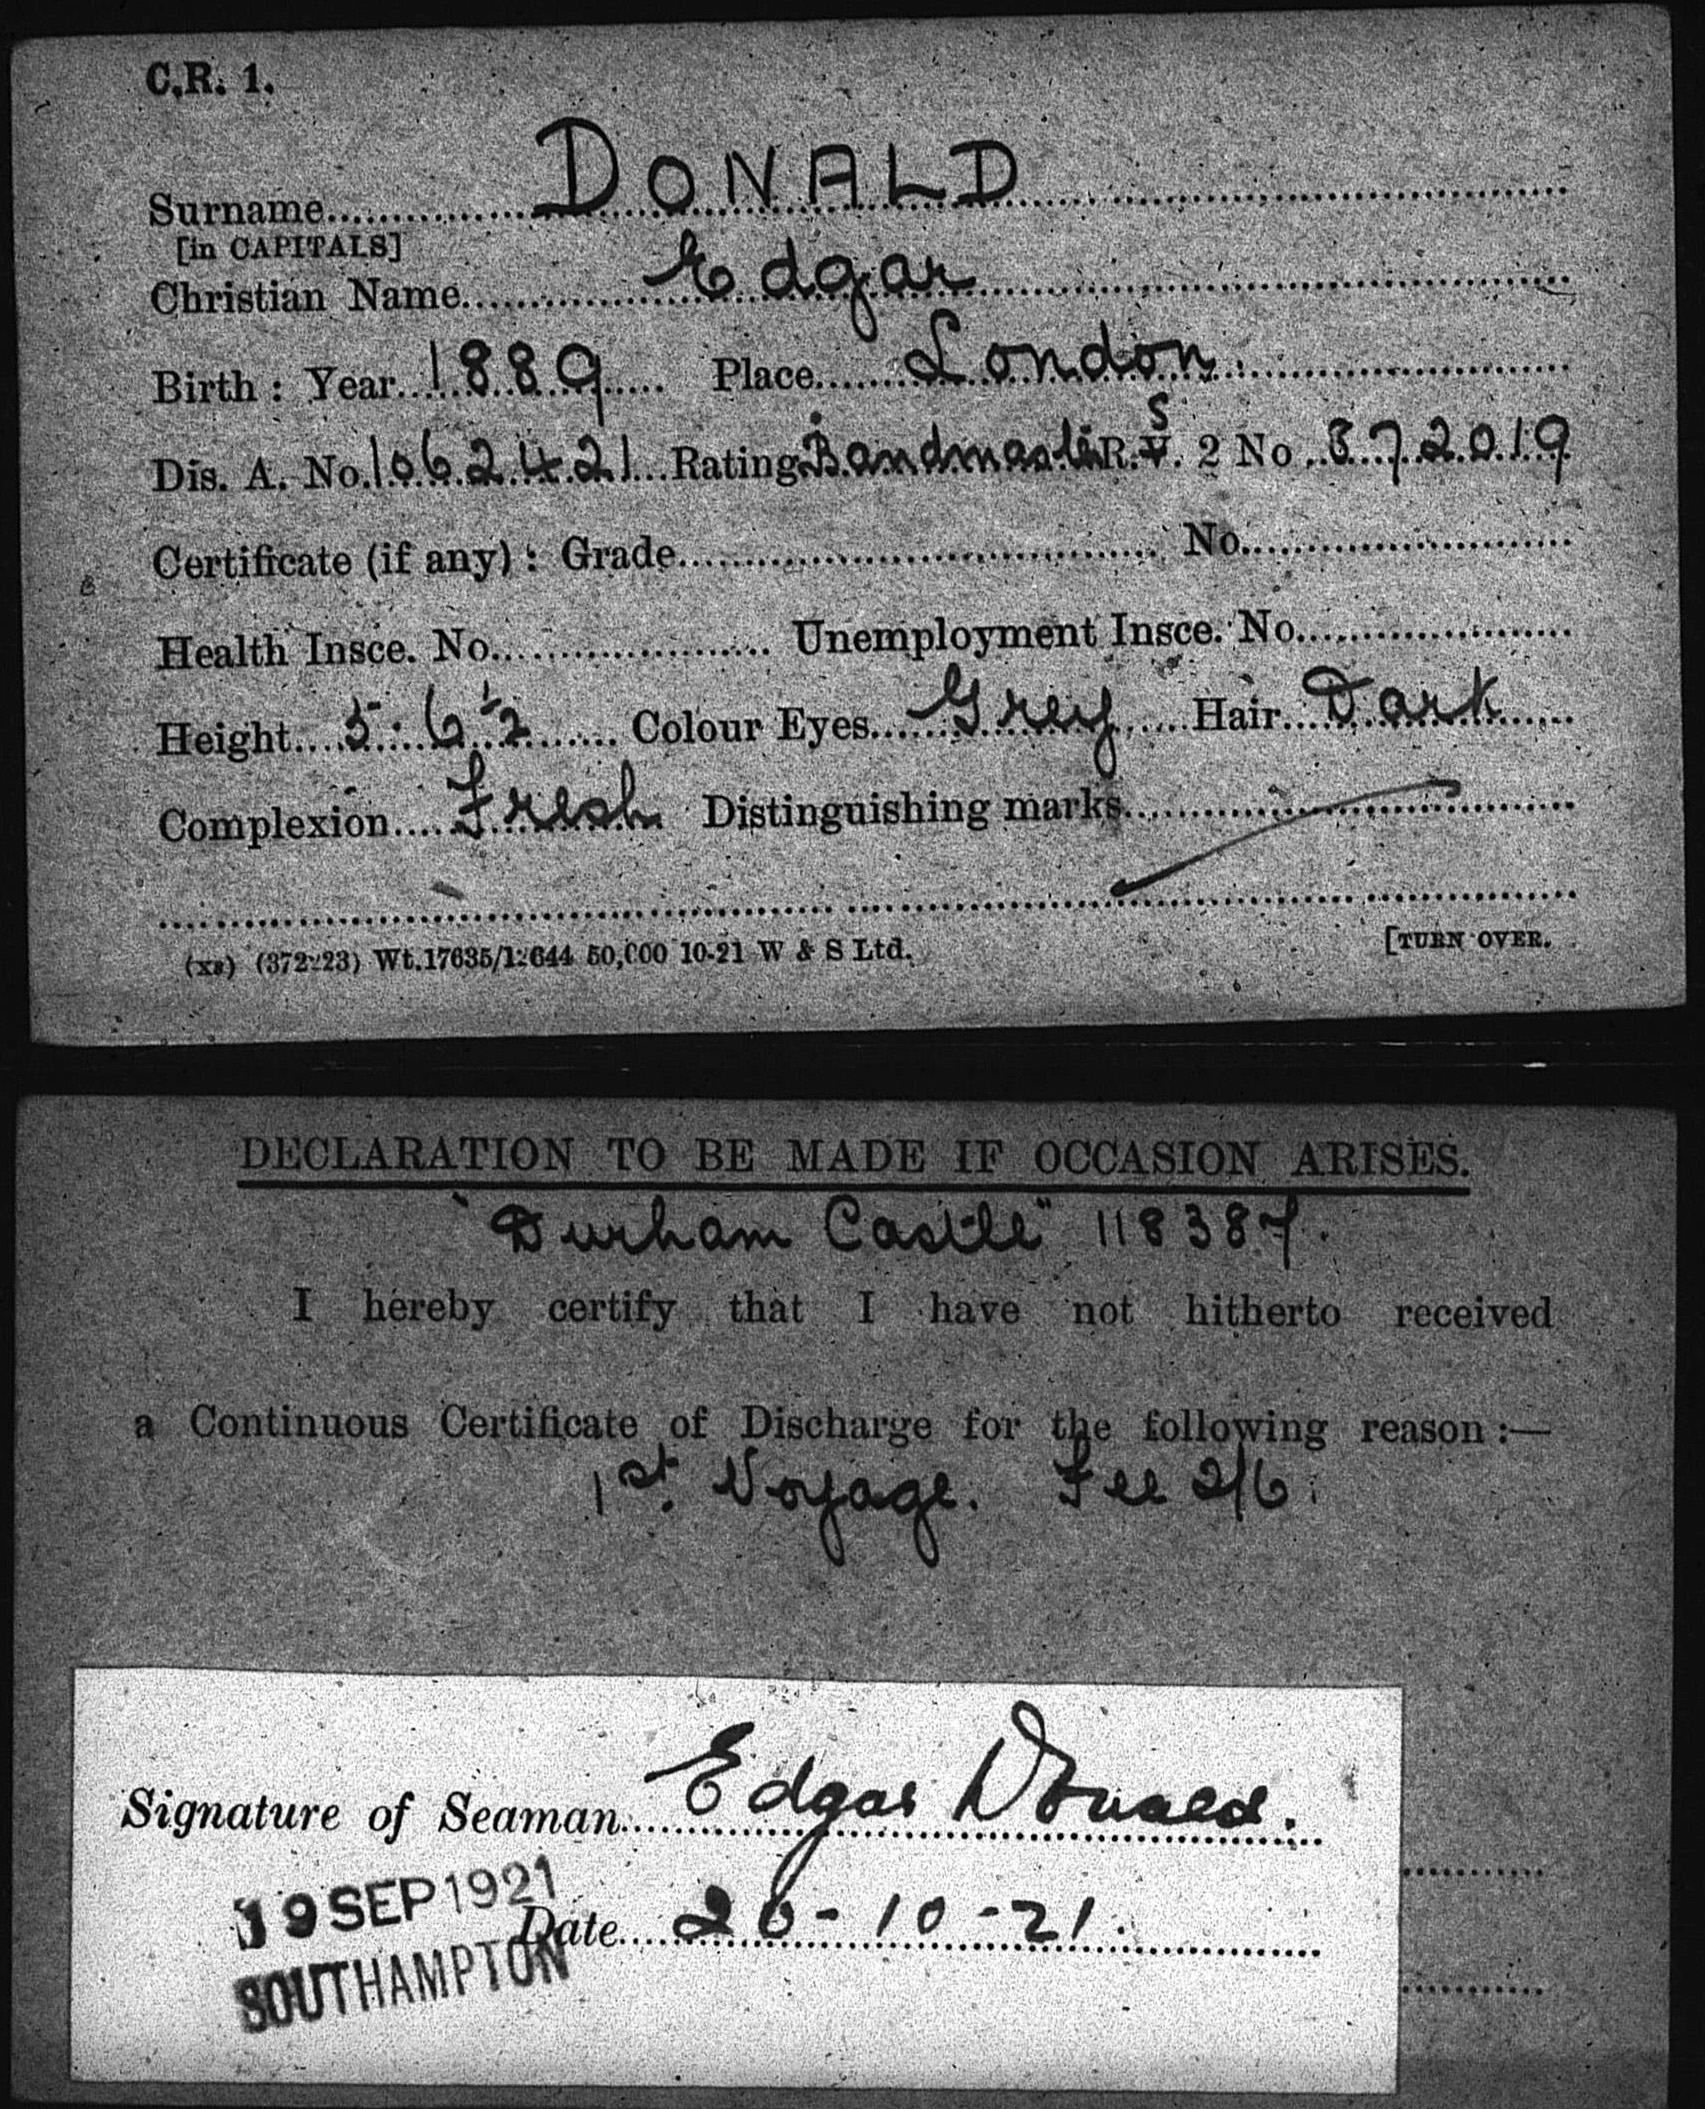 C.R. 1.
Surname DONALD
[in CAPITALS]
Christian Name Edgar
Birth: Year 1889 Place London.
S
Dis. A. No. 1062421 Rating Bandmaster R.V. 2 No 372019
Certificate (if any): Grade No
Health Insce. No. Unemployment Insce. No.
Height 5. 6½ Colour Eyes Grey Hair Dark
Complexion Fresh Distinguishing marks
(xs) (372223) Wt.17635/12644 50,000 10-21 W & S Ltd. [TURN OVER.
DECLARATION TO BE MADE IF OCCASION ARISES.
"Durham Castle" 118387.
I hereby certify that I have not hitherto received
a Continuous Certificate of Discharge for the following reason:—
1st. Voyage. Fee 2/6.
Signature of Seaman Edgar Donald.
19 SEP 1921
Date 20-10-21.
SOUTHAMPTON